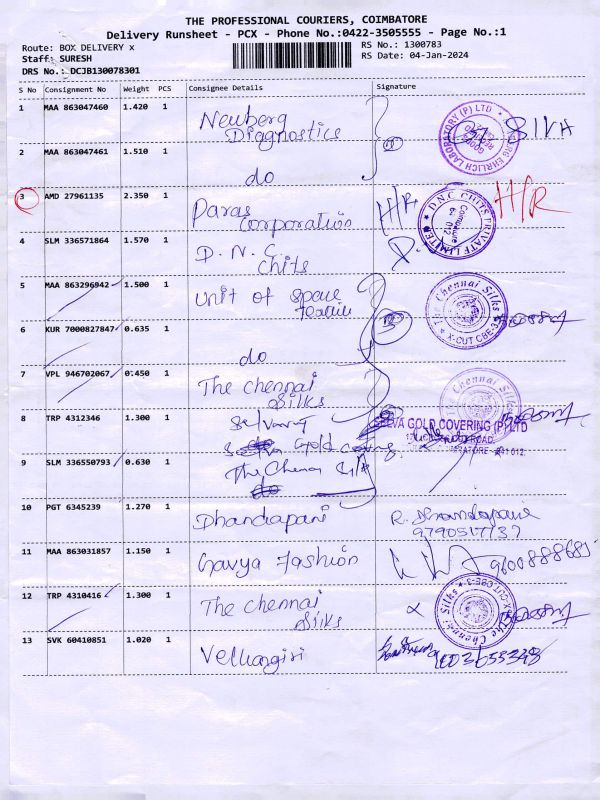 THE PROFESSIONAL COURIERS, COIMBATORE
Delivery Runsheet - PCX - Phone No.:0422-3505555 - Page No.:1
Route: BOX DELIVERY x
RS No.: 1300783
Staff: SURESH
RS Date: 04-Jan-2024
DRS No.: DCJB130078301
S No Consignment No Weight PCS Consignee Details Signature
1 MAA 863047460 1.420 1 Neuberg Diagnostics
SIVA
2 MAA 863047461 1.510 1 do
3 AMD 27961135 2.350 1 Paras Corporation H/R H/R
D.N.C CHITS PRIVATE LIMITED
4 SLM 336571864 1.570 1 D.N.C Chits
5 MAA 863296942 1.500 1 unit of
The Chennai Silks
X-CUT CBE-3
6 KUR 7000827847 0.635 1 do
7 VPL 946702067 0.450 1 The Chennai Silks
The Chennai Silks
8 TRP 4312346 1.300 1 Selvaraj
Gold
SELVA GOLD COVERING (P) LTD
9 SLM 336550793 0.630 1
10 PGT 6345239 1.270 1 Dhandapani R. Dhandapani
9790517737
11 MAA 863031857 1.150 1 Gavya Fashion 9600888685
12 TRP 4310416 1.300 1 The Chennai Silks
The Chennai Silks
X-CUT CBE-3
13 SVK 60410851 1.020 1 Velliangiri